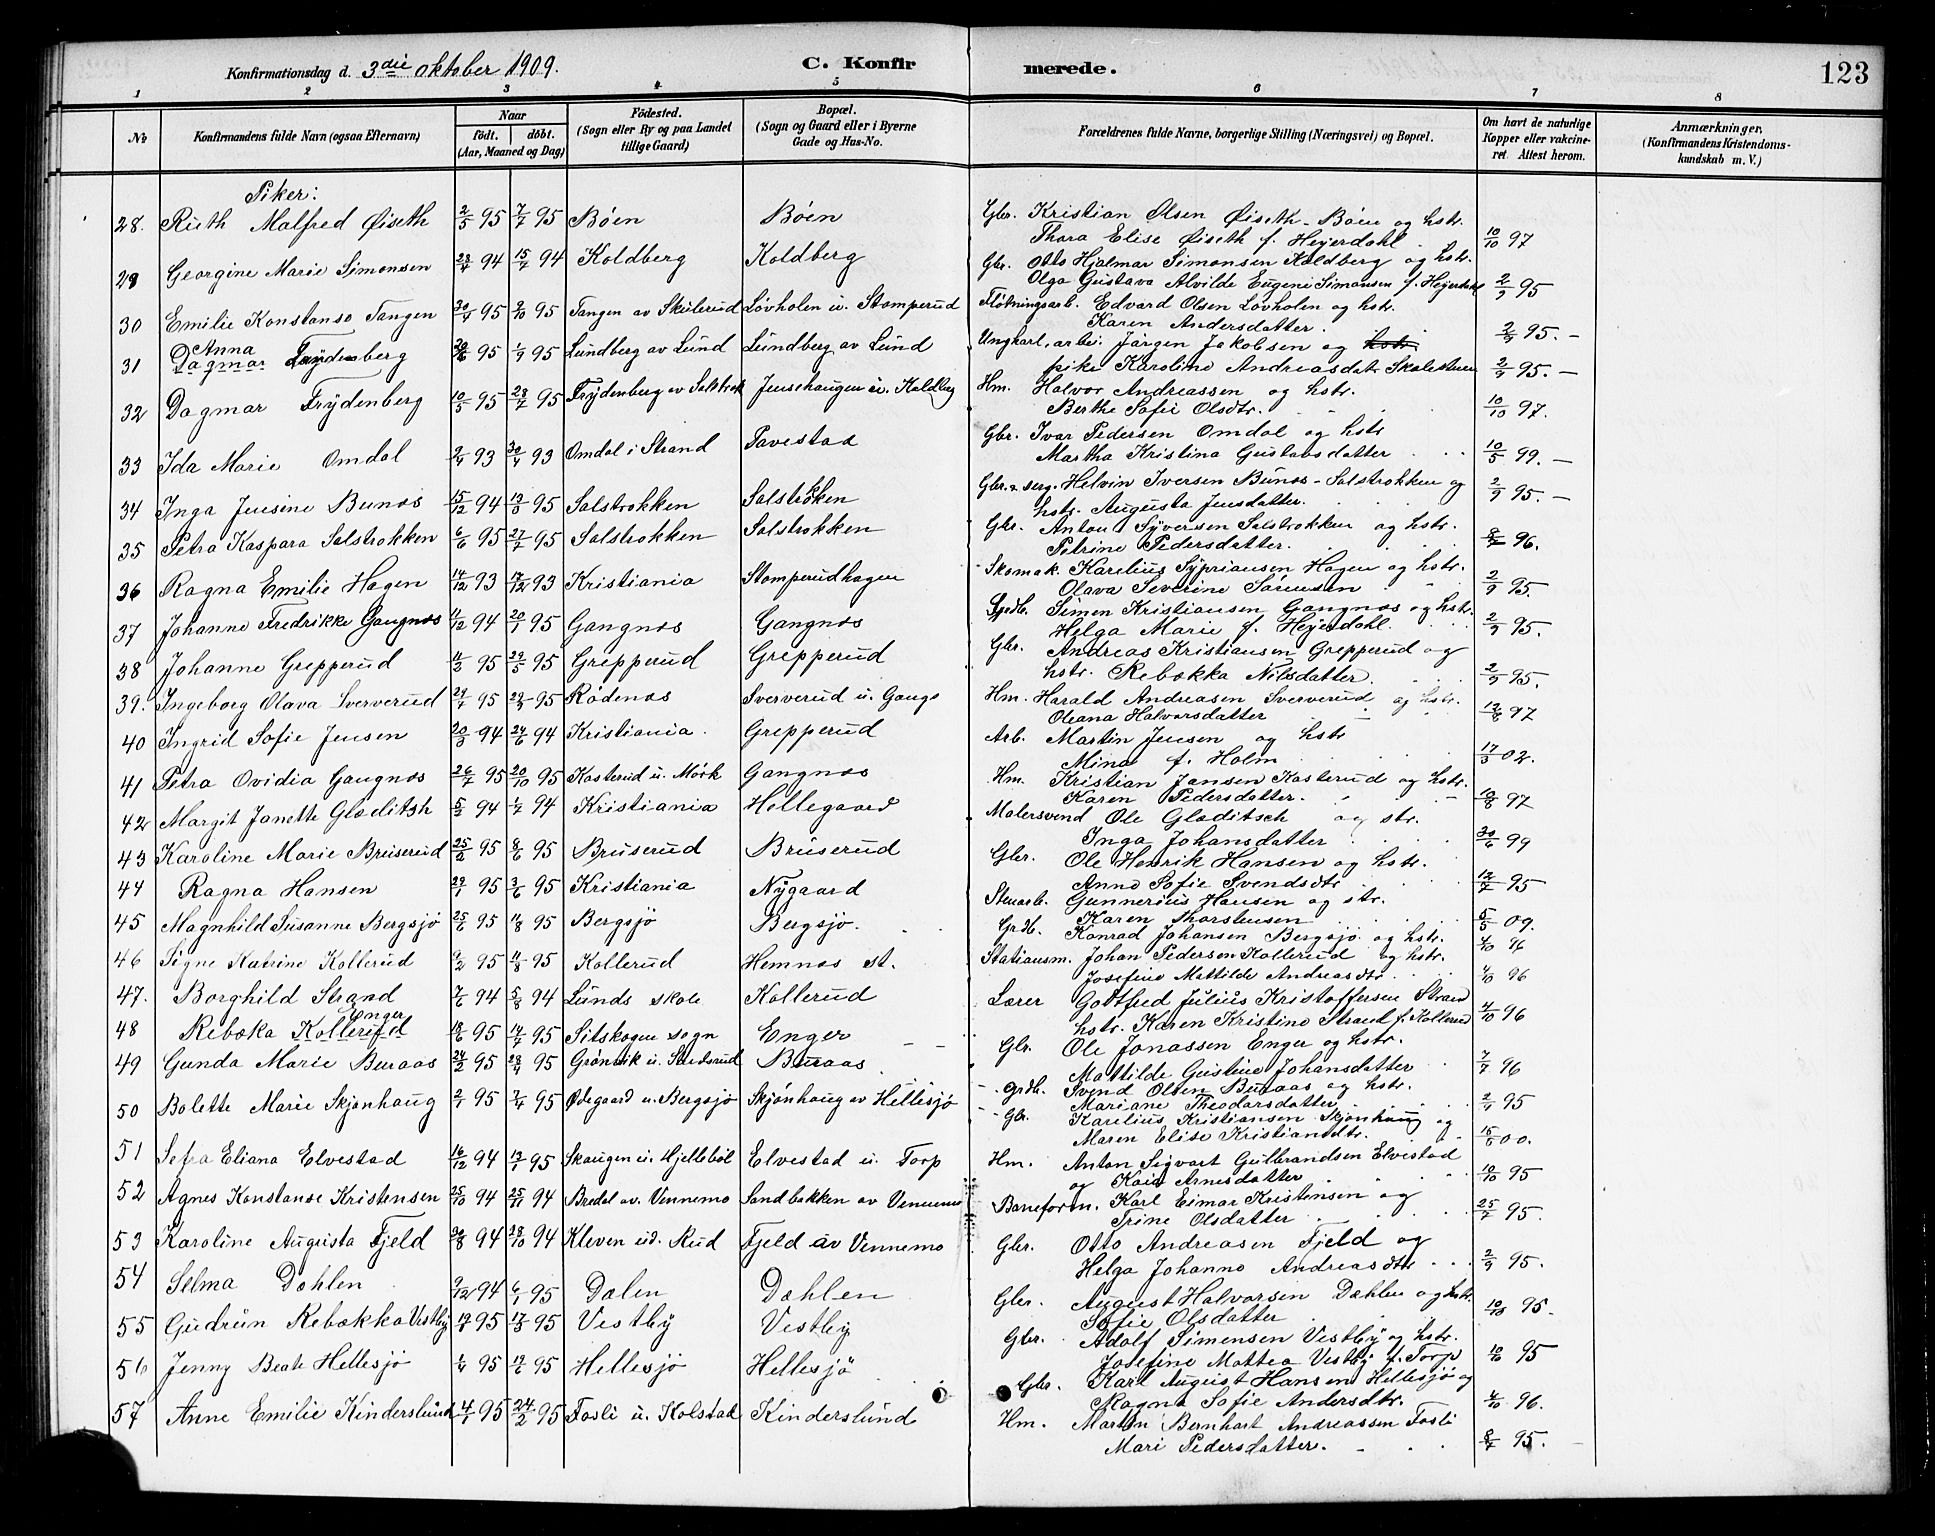 Konfirmationsdag d. 3die oktober 1909. C. Konfirmerede. 123
1 2 3 4 5 6 7 8
No Konfirmandens fulde Navn (ogsaa Efternavn) Naar født. døbt. (Aar, Maaned og Dag) Fødested. (Sogn eller By og paa Landet tillige Gaard) Bopæl. (Sogn og Gaard eller i Byerne Gade og Hus-No. Forældrenes fulde Navne, borgerlige Stilling (Næringsvei) og Bopæl. Om havt de naturlige Kopper eller vakcineret. Attest herom. Anmærkninger, (Konfirmandens Kristendomskundskab m. V.)
Piker:
28. Ruth Malfred Øiseth 2/5 95 7/7 95 Bøen Bøen Gbr. Kristian Olsen Øiseth-Bøen og hstr.
Thora Elise Øiseth f. Heyerdahl 10/10 97
29 Georgine Marie Simonsen 94 15/7 94 Koldberg Koldberg Gbr. Otto Hjalmar Simonsen Koldberg og hstr.
Olga Gustava Alvilde Eugenie Simonsen f. Heyerdahl 2/9 95
30 Emilie Konstanse Tangen 95 2/10 95 Tangen av Skulerud Løvholen u. Stomperud Fløtningsarb. Edvard Olsen Løvholen og hstr.
Karen Andersdatter. 2/9 95. -
31 Anna Dagmar Frydenberg 95 1/9 95 Lundberg av Lund Lundberg av Lund Ungkarl, arb. Jørgen Jakobsen og hstr
pike Karoline Andreasdat. 2/9 95. -
32 Dagmar Frydenberg 10/5 95 28/7 95 Frydenberg av Salstrok Jensehaugen u. Koldberg Hm. Halvor Andreassen og hstr.
Berthe Sofie Olsdtr. 10/10 97.
33 Ida Marie Omdal 93 30/4 93 Omdal i Strand Tavestad Gbr. Ivar Pedersen Omdal og hstr
Martha Kristina Gustavsdatter 10/5 99. -
34 Inga Jensine Bunes 15/12 94 95 Salstrokken Salstrokken Gbr. & serg. Helvin Iversen Bunes-Salstrokken og
hstr. Augusta Jensdatter. 2/9 95. -
35 Petra Kaspara Salstrokken 6/6 95 21/7 95 Salstrokken Salstrokken Gbr. Anton Syversen Salstrokken og hstr.
Petrine Pedersdatter. 96.
36 Ragna Emilie Hagen 14/12 93 17/12 93 Kristiania Stomperudhagen Skomak. Karelius Sypriansen Hagen og hstr.
Olava Severine Sørensen 2/9 95.
37 Johanne Fredrikke Gangnæs 11/12 94 20/1 95 Gangnæs Gangnæs Simen Kristiansen Gangnæs og hstr.
Helga Marie f. Heyerdahl. 2/9 95.
38 Johanne Grepperud 11/3 95 29/5 95 Grepperud Grepperud Gbr. Andreas Kristiansen Grepperud og
hstr. Rebekka Nilsdatter. 2/9 95.
39. Ingeborg Olava Sververud 95 95 Rødenæs Sververud u. Gangs Hm. Harald Andreasen Sververud og hstr.
Oleana Halvorsdatter 97
40 Ingrid Sofie Jensen 20/3 94 24/6 94 Kristiania. Grepperud Arb. Martin Jensen og hstr
Mina f. Holm 02.
41 Petra Ovidia Gangnæs 26/7 95 20/10 95 Kasterud u. Mørk Gangnæs Hm. Kristian Jansen Kasterud og hstr.
Karen Pedersdatter. 10/8 97
42 Margit Janette Gladitsh 94 1/7 94 Kristiania Hellegaard Malersvend Ole Gladitsch og str.
Inga Johansdatter 30/6 99
43 Karoline Marie Bruserud 25/2 95 8/6 95 Bruserud Bruserud Gbr. Ole Henrik Hansen og hstr.
Anne Sofie Svendsdtr 12/7 95
44 Ragna Hansen 29/1 95 3/6 95 Kristiania Nygaard Stenarb. Gunnerius Hansen og str.
Karen Thorstensen 5/5 09.
45 Magnhild Susanne Bergsjø 95 11/8 95 Bergsjø Bergsjø. Grdb. Konrad Johansen Bergsjø og hstr. 4/10 96
46 Signe Katrine Kollerud 9/2 95 11/8 95 Kollerud Hemnæs st. Stationsm. Johan Pedersen Kollerud og hstr.
Josefine Mathilde Andreasdtr. 4/10 96
47. Borghild Strand 94 5/8 94 Lunds skole Kollerud Lærer Gottfred Julius Kristoffersen Strand
hstr. Karen Kristine Strand f. Kollerud 4/10 96
48 Rebæka Kollerud Enger 95 14/7 95 Sitskogen sogn Enger Gbr. Ole Jonassen Enger og hstr.
Mathilde Gustine Johansdatter 7/7 96
49 Gunda Marie Buraas 24/2 95 28/4 95 Grønvik u. Buraas Grdb. Svend Olsen Buraas og hstr.
Mariane Theodorsdatter 2/9 95
50 Bolette Marie Skjønhaug 2/1 95 7/4 95 Ødegaard u. Bergsjø Skjønhaug av Hellesjø Gbr. Karelius Kristiansen Skjønhaug og
Maren Elise Kristiandtr. 00.
51 Sefra Eliana Elvestad 16/12 94 95 Skaugen u. Hjellebøl Elvestad u. Torp Hm. Anton Sigvart Gulbrandsen Elvestad
og Kaia Arnesdatter 10/10 95
52 Agnes Konstanse Kristensen 25/10 94 25/11 94 Bredal av. Vennemo Sandbakken av Vennemo Barneform. Karl Eimar Kristensen og
Trine Olsdatter 25/7 95.
53 Karoline Augusta Fjeld 94 28/10 94 Kleven ud. Rud Fjeld av Vennemo Gbr. Otto Andreasen Fjeld og
Helga Johanne Andreasdtr. 2/9 95.
54 Selma Dæhlen 9/12 94 6/1 95 Dælen Dæhlen Gbr. August Halvorsen Dæhlen og hstr
Sofie Olsdatter 10/10 95.
55 Gudrun Rebækka Vestby 95 95 Vestby Vestby Gbr. Adolf Simensen Vestby og hstr.
Josefine Mattea Vestby f. Torp 10/10 95
56 Jenny Beate Hellesjø 95 95 Hellesjø Hellesjø Gbr. Karl August Hansen Hellesjø og
Magna Sofie Andersdtr. 4/10 96.
57 Anne Emilie Kinderslund 4/1 95 24/2 95 Fosli u. Kolstad Kinderslund Hm. Martin Bernhart Andreassen Fosli
Mari Pedersdatter. 95. -